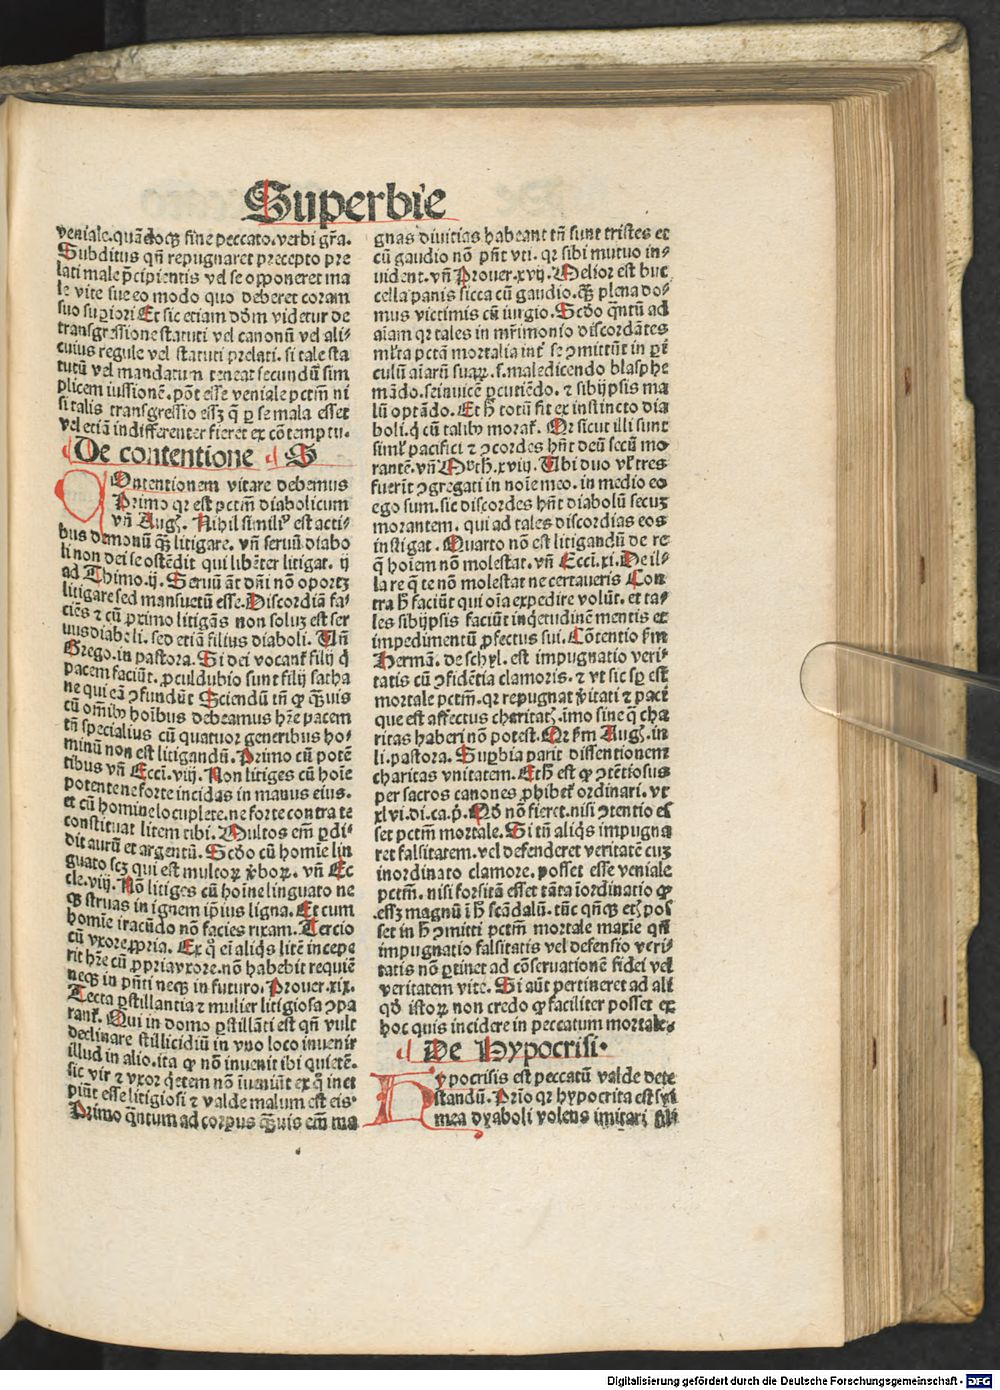 Superbie
veniale.quãdocqꝫ sine peccato.verbi gr̃a.
Subditus qñ repugnaret precepto pre
lati male p̃cipientis vel se opponeret ma
le vite sue eo modo quo deberet coram
suo sup̱iori Et sic etiam dõm videtur de
transgressione statuti vel canonũ vel ali-
cuius regule vel statuti prelati. si tale sta
tutũ vel mandatum teneat secundũ sim
plicem iussionẽ.põt esse veniale pctm̃ ni
si talis transgressio essꝫ q̃ p̱ se mala esset
vel etiã indifferenter fieret ex cõtemptu.
De contentione S
Ontentionem vitare debemus
Primo qr est pctm̃ diabolicum
vñ Augꝰ. Nihil similiꝰ est acti-
bus demonũ qꝫ litigare. vñ seruũ diabo
li non dei se ostẽdit qui libẽter litigat. ij
ad Thimo.ij. Seruũ ãt dñi nõ oportꝫ
litigare sed mansuetũ esse. Discordiã fa-
ciẽs ⁊ cũ primo litigãs non soluꝫ est ser
uus diaboli. sed etiã filius diaboli. Vñ
Grego.in pastora. Si dei vocant̃ filij q̇
pacem faciũt. ꝓculdubio sunt filij satha
ne qui eã ꝯfundũt Sciendũ tñ ꝙ qꝫuis
cũ omĩbꝰ hoĩbus debeamus hr̃e pacem
tñ specialius cũ quatuor generibus ho-
minũ non est litigandũ. Primo cũ potẽ
tibus vñ Ecci.viij. Non litiges cũ hoĩe
potente ne forte incidas in manus eius.
et cũ homine locuplete.ne forte contra te
constituat litem tibi. Multos em̃ p̱di-
dit aurũ et argentũ. Scðo cũ homĩe lin
guato scꝫ qui est multoꝝ ꝟboꝝ. vñ Ec
cle.viij. Nõ litiges cũ hoĩne linguato ne
qꝫ struas in ignem ip̃ius ligna. Et cum
homĩe iracũdo nõ facies rixam. Tercio
cũ vxore ꝓpria. Ex q̊ eĩ aliq̇s litẽ incepe
rit hr̃e cũ ꝓpria vxore.nõ habebit requiẽ
neqꝫ in pñti neqꝫ in futuro. Prouer.xix.
Tecta p̱stillantia ⁊ mulier litigiosa ꝯpa
rant̃. Qui in domo p̱stillãti est qñ vult
declinare stillicidiũ in vno loco inuenir
illud in alio.ita ꝙ nõ inuenit ibi quietẽ.
sic vir ⁊ vxor q̇etem nõ ĩueniũt ex q̊ incꝫ
piũt esse litigiosi ⁊ valde malum est eis.
Primo q̃ntum ad corpus qꝫuis em̃ ma
gnas diuitias habeant tñ sunt tristes et
cũ gaudio nõ pñt vti. qr sibi mutuo in-
uident. vñ Prouer.xvij. Melior est buc
cella panis sicca cũ gaudio.qꝫ plena do-
mus victimis cũ iurgio. Scðo q̃ntũ ad
aĩam qr tales in mr̃imonio discordãtes
ml̃ta pctã mortalia int̃ se ꝯmittũt in p̱i
culũ aĩarũ suaꝝ. s. maledicendo blasphe
mãdo. seinuicẽ p̱cutiẽdo. ⁊ sibijpsis ma
lũ optãdo. Et h̃ totũ fit ex instincto dia
boli. q̇ cũ talibꝰ morat̃. Qr sicut illi sunt
simil̃ pacifici ⁊ ꝯcordes hñt deũ secũ mo
rantẽ. vñ Math.xviij. Vbi duo vl̃ tres
fuerĩt ꝯgregati in noĩe meo. in medio eo
ego sum. sic discordes hñt diabolũ secuꝫ
morantem. qui ad tales discordias eos
instigat. Quarto nõ est litigandũ de re
q̃ hoĩem nõ molestat. vñ Ecci.xi. De il-
la re q̃ te nõ molestat ne certaueris Con
tra h̃ faciũt qui oĩa expedire volũt. et ta-
les sibijpsis faciũt inq̇etudinẽ mentis et
impedimentũ ꝓfectus sui. Cõtentio fm̃
Hermã. de schyl. est impugnatio veri-
tatis cũ ꝯfidẽtia clamoris. ⁊ vt sic sp̱ est
mortale pctm̃. qr repugnat ꝟitati ⁊ paci
que est affectus charitatꝭ. imo sine q̃ cha
ritas haberi nõ potest. Qr fm̃ Augꝰ. in
li.pastora. Supbia parit dissentionem
charitas vnitatem. Et h̃ est ꝙ ꝯtẽtiosus
per sacros canones ꝓhibet̃ ordinari. vt
xlvi.di.ca.p̃. Qð nõ fieret.nisi ꝯtentio es
set pctm̃ mortale. Si tñ aliq̇s impugna
ret falsitatem.vel defenderet veritatẽ cuꝫ
inordinato clamore. posset esse veniale
pctm̃. nisi forsitã esset tãta ĩordinatio ꝙ
.essꝫ magnũ ĩ h̃ scãdalũ. tũc qñqꝫ etꝫ pos
set in h̃ ꝯmitti pctm̃ mortale maxĩe qñ
impugnatio falsitatis vel defensio veri-
tatis nõ p̱tinet ad cõseruationẽ fidei vel
veritatem vite. Si aũt pertineret ad ali
qð istoꝝ non credo ꝙ faciliter posset ex
hoc quis incidere in peccatum mortale.
De Hypocrisi.
Hypocrisis est peccatũ valde dete
standũ. Prĩo qr hypocrita est syꝫ
mea dyaboli volens imitari
Digitalisierung gefördert durch die Deutsche Forschungsgemeinschaft - DFG